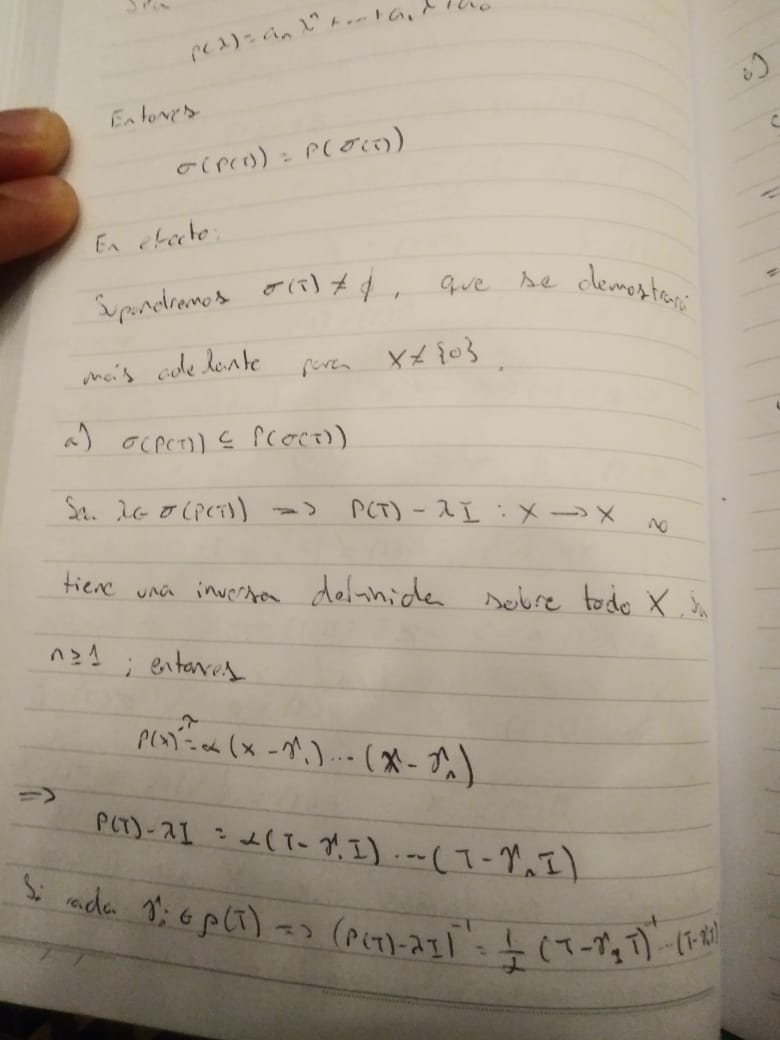 Sea
p(λ) = aₙ λⁿ + ... + a₁ λ + a₀
Entonces
σ(P(T)) = P(σ(T))
En efecto:
Supondremos σ(T) ≠ ∅, que se demostrará
más adelante para X ≠ {0}.
a) σ(P(T)) ⊆ P(σ(T))
Sea λ ∈ σ(P(T)) => P(T) - λI : X → X no
tiene una inversa definida sobre todo X. Sea
n ≥ 1 ; entonces
P(x) - λ = α (x - γ₁) ... (x - γₙ)
=>
P(T) - λI = α (T - γ₁I) ... (T - γₙI)
Si cada γᵢ ∈ ρ(T) => (P(T) - λI)⁻¹ = 1/α (T - γ₁I)⁻¹ ...